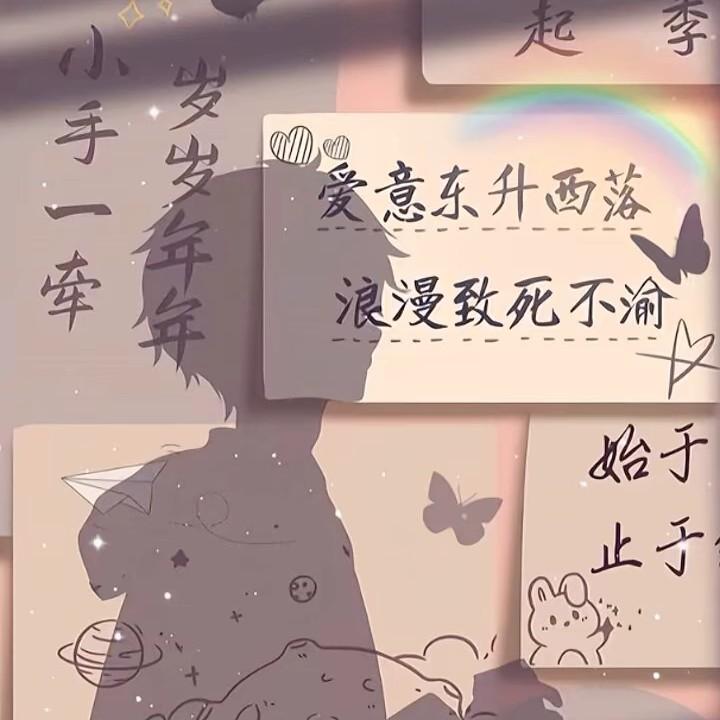 小手一牵
岁岁年年
起 季
爱意东升西落
浪漫致死不渝
始于
止于